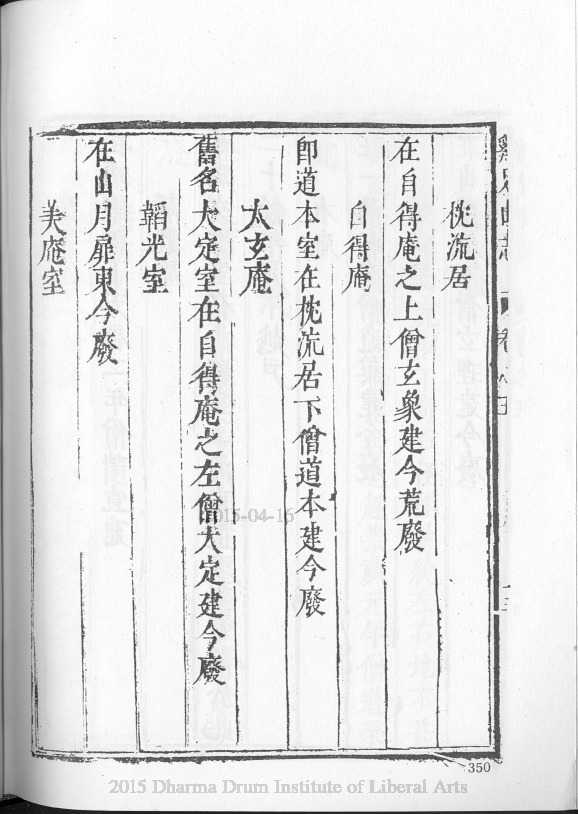 枕流居
在自得庵之上僧玄象建今荒廢
自得庵
即道本室在枕流居下僧道本建今廢
太玄庵
舊名大定室在自得庵之左僧大定建今廢
韜光室
在山月扉東今廢
美庵室
350
2015-04-16
2015 Dharma Drum Institute of Liberal Arts